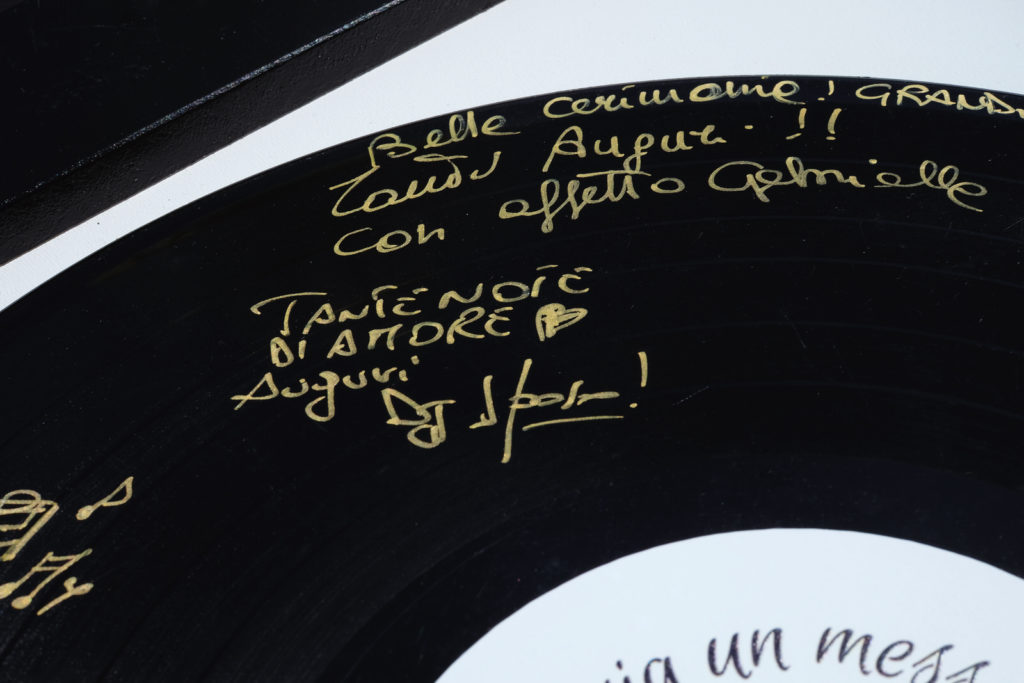 Belle cerimonie! GRAND
Tanti Auguri !!
con affetto Gabrielle
TANTE NOTE
DI AMORE
Auguri
DJ
un mess